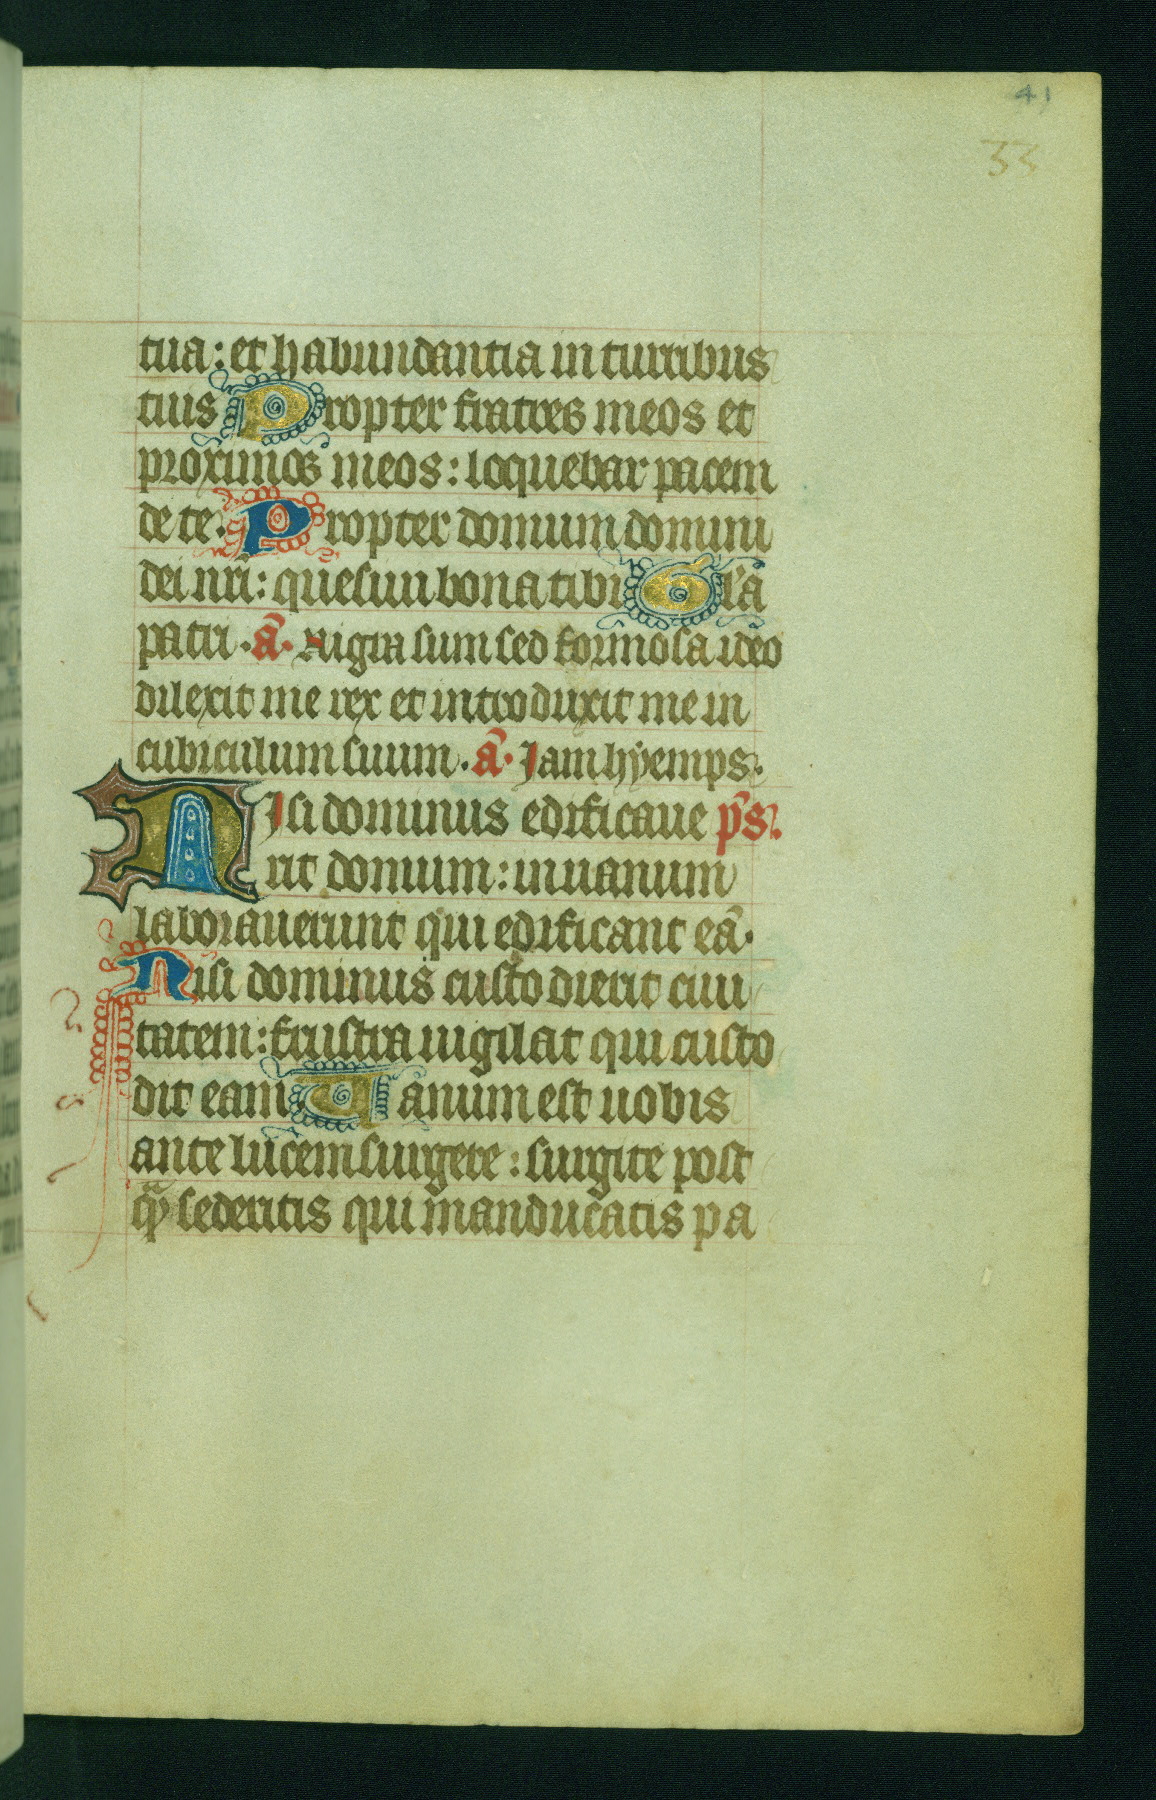 41
33
tua: et habundantia in turribus
tuis Propter fratres meos et
proximos meos: loquebar pacem
de te. Propter domum domini
dei nr̄i: quesiui bona tibi Gl̄a
patri. ā. Nigra sum sed formosa ideo
dilexit me rex et introduxit me in
cubiculum suum. ā. Iam hyemps.
Nisi dominus edificaue p̄s.
rit domum: in uanum
laborauerunt qui edificant eā.
Nisi dominus custodierit ciui
tatem: frustra uigilat qui custo
dit eam Uanum est uobis
ante lucem surgere: surgite post
qͣ sederitis qui manducatis pa